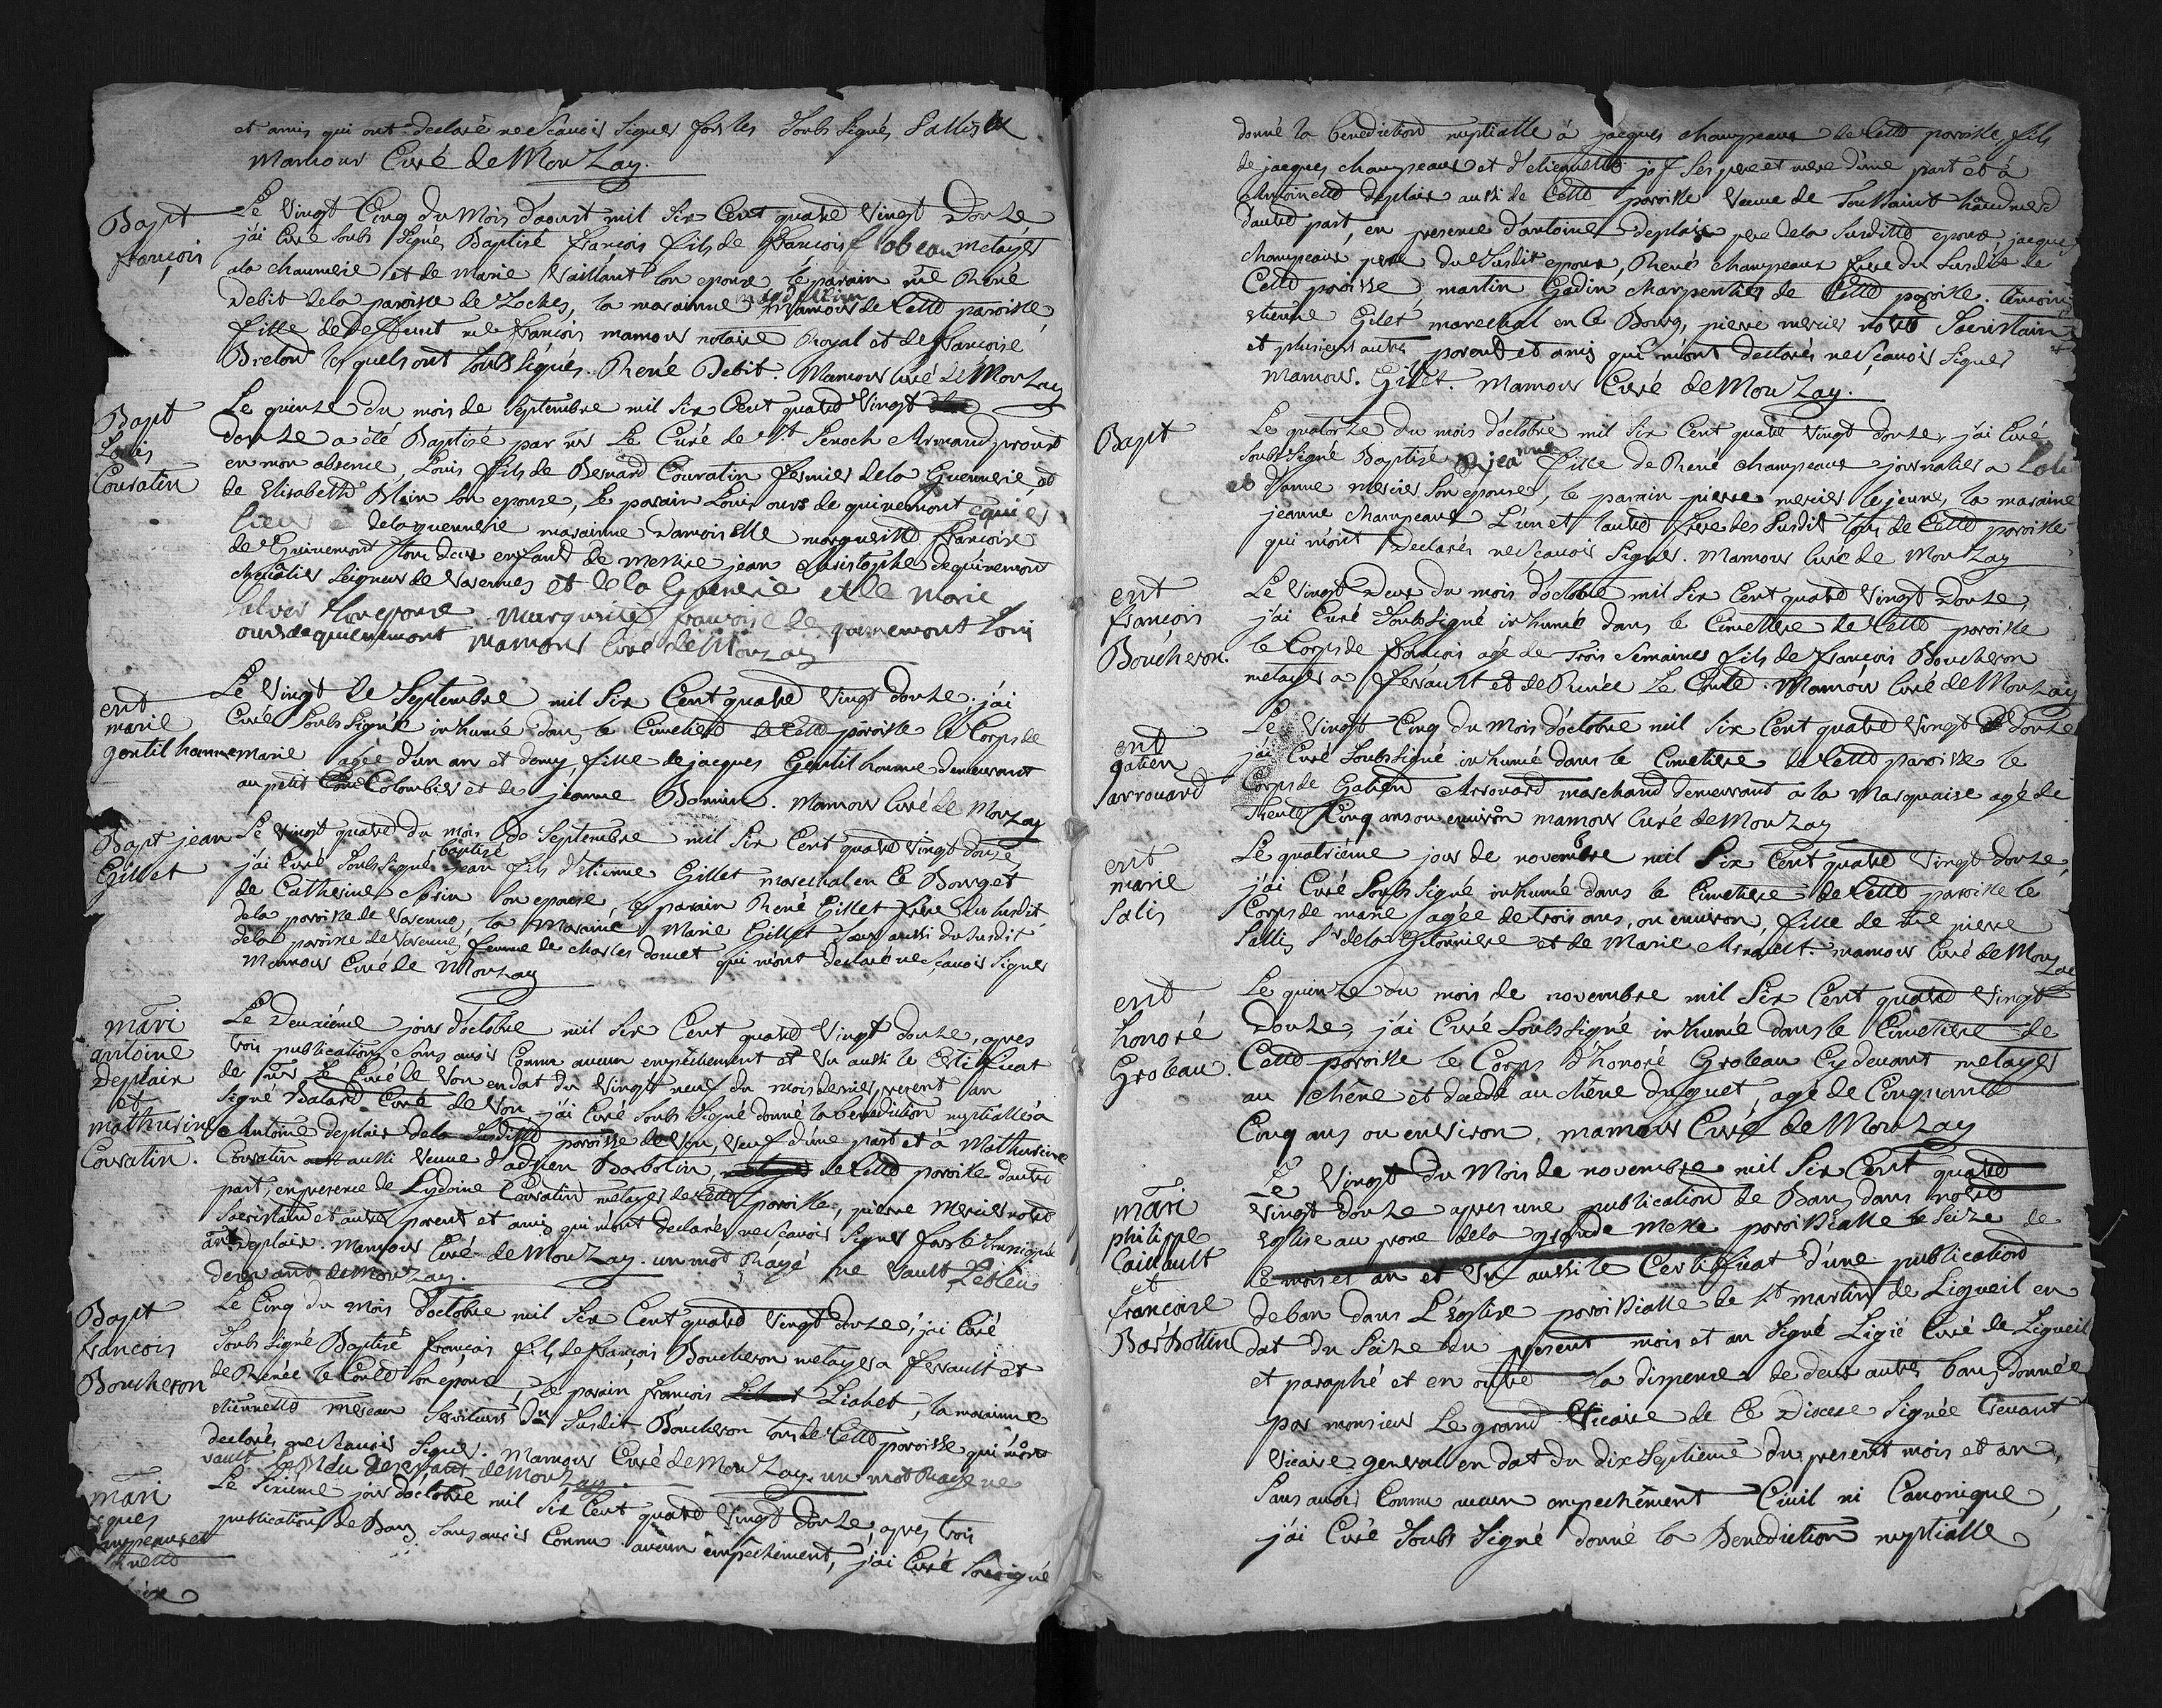 et amis qui ont declaré ne Scavoir Signer fors les Soubs Signés Sallis
mamour Curé de Mouzay.
Bapt
françois
Le Vingt Cinq du Mois d'aoust mil Six Cent quatre Vingt Douze
j'ai Curé Soubs Signé Baptisé françois fils de François lobeau metayer
a la chaumerie et de marie Vaillant son epouse le parain me René
Debit de la paroisse de Loches, la maraine magdelene mamour de Cette paroisse,
fille de deffunt me françois mamour notaire Royal et de françoise
Breton lesquels ont Soubs Signés. René Debit. Mamour Curé de Mouzay
Bapt
Louis
Couratin
Le quinze du mois de Septembre mil Six Cent quatre Vingt
douze a été Baptisé par mr Le Curé de St Senoch Armand proust
en mon absence, Louis fils de Bernard Couratin fermier de la Guennerie et
de Elisabeth Blain son epouse, le parain Louis ours de quinemont
de la guennerie maraine damoiselle marguerite françoise
de Guinemont tous deux enfans de messire jean christophe de quinemont
chevalier Seigneur de Varennes et de la Guenerie et de Marie
Salver son epouse. Marguerite françoise de quinemont Louis
ours de quinemont mamour Curé de Mouzay
ent
marie
gentilhomme
Le Vingt de Septembre mil Six Cent quatre Vingt douze, j'ai
Curé Soubs Signé inhumé dans le Cimetiere de Cette paroisse le Corps de
marie agée d'un an et demy, fille de jacques Gentilhomme demeurant
au petit Colombier et de jeanne Bonnin. Mamour Curé de Mouzay
Bapt jean
Gillet
Le Vingt quatre du mois de Septembre mil Six Cent quatre Vingt douze
j'ai Curé Soubs Signé baptisé jean fils d'Etienne Gillet marechal en Ce Bourg et
de Catherine son epouse le parain René Gillet frere du Susdit
de la paroisse de Varennes, la Maraine Marie Gillet Sœur aussi du Susdit
de la paroisse de Varennes femme de charles doucet qui m'ont declaré ne Scavoir Signer
Mamour Curé de Mouzay
mari
antoine
Deplaix
et
mathurine
Couratin.
Le Deuxiéme jour d'octobre mil Six Cent quatre Vingt douze, apres
trois publications Sans avoir Connu aucun empéchement et Vu aussi le Certificat
de mr Le Curé de Vou en dat du Vingt neuf du mois dernier present an
Signé Balard Curé de Vou j'ai Curé Soubs Signé donné la benediction nuptialle a
Antoine deplaix de la Susditte paroisse de Vou, Veuf d'une part et à Mathurine
Couratin aussi Veuve d'adrien Barbotin, de Cette paroisse d'autre
part, en presence de Lydoire Couratin metayer de Cette paroisse, pierre Mercier notre
Sacristain et autres parent et amis qui m'ont declarés ne Scavoir Signer fors le Soussigné
ant deplaix. Mamour Curé de Mouzay. un mot Rayé ne Vault
deservant de Mouzay.
Bapt
francois
Boucheron
Le Cinq du Mois d'octobre mil Six Cent quatre Vingt douze, j'ai Curé
Soubs Signé Baptisé françois fils de françois Boucheron metayer a ferrault et
de Renée le Conte son epouse, le parain françois Liahet, la maraine
etiennette mereau Serviteurs du Susdit Boucheron tous de Cette paroisse qui m'ont
declarés ne Scavoir Signer. Mamour Curé de Mouzay. un mot Rayé ne
vault deservant de Mouzay
mari
Le Sixieme jour d'octobre mil Six Cent quatre Vingt douze, apres trois
publications de Bans Sans avoir Connu aucun émpechement, j'ai Curé Sousigné
donné la benediction nuptialle à jacques champeaux de Cette paroisse, fils
de jacques champeaux et d'etiennette jof Ses pere et mere d'une part et à
Antoinette deplaix aussi de Cette paroisse Veuve de Toussaint
d'autre part, en presence d'antoine deplaix pere de la Susditte epouse, jacques
champeaux pere du Susdit epoux, René champeaux frere du Susdit de
Cette paroisse martin Godin charpentier de Cette paroisse. temoins
etienne Gilet marechal en Ce Bourg, pierre mercier notre Sacristain
et plusieurs autres parents et amis qui m'ont declarés ne Scavoir Signer
mamour. Gilet. Mamour Curé de Mouzay.
Bapt
Le quatorze du mois d'octobre mil Six Cent quatre Vingt douze, j'ai Curé
Soubs Signé Baptisé jeanne fille de René champeaux journalier a
et d'anne mercier Son epouse, le parain pierre mercier le jeune, la maraine
jeanne champeaux L'un et l'autre frere des Susdit tous de Cette paroisse
qui m'ont Declarés ne Scavoir Signer. Mamour Curé de Mouzay
ent
françois
Boucheron.
Le Vingt Deux du mois d'octobre mil Six Cent quatre Vingt Douze,
j'ai Curé Soubs Signé inhumé dans le Cimettiere de Cette paroisse
le Corps de François agé de Trois Semaines fils de françois Boucheron
metayer a ferrault et de Renée Le Conte. Mamour Curé de Mouzay
ent
gatien
arrouard
Le Vingt Cinq du Mois d'octobre mil Six Cent quatre Vingt douze
j'ai Curé Soubs Signé inhumé dans le Cimetiere de Cette paroisse le
Corps de Gatien Arrouard marchand demeurant a la Marquaise agé de
Trente Cinq ans ou environ mamour Curé de Mouzay
ent
marie
Salis
Le quatriéme jour de novembre mil Six Cent quatre Vingt douze,
j'ai Curé Soubs Signé inhumée dans le Cimetiere de Cette paroisse le
Corps de marie agée de trois ans, ou environ, fille de me pierre
Sallis Sr de la Gitonniere et de Marie Arnault. mamour Curé de Mouzay
ent
honoré
Groleau.
Le quinze du mois de novembre mil Six Cent quatre Vingt
Douze, j'ai Curé Soubs Signé inhumé dans le Cimetiere de
Cette paroisse le Corps d'honoré Groleau Cy devant metayer
au chêne et decedé au chêne duguet, agé de Cinquante
Cinq ans ou environ. mamour Curé de Mouzay
mari
philippe
Caillault
et
françoise
Barbottin
Le Vingt du Mois de novembre mil Six Cent quatre
Vingt Douze apres une publication de Bans dans notre
Eglise au prone de la grande Messe paroissialle le Seize de
Ce mois et an et Vu aussi le Certificat d'une publication
de ban dans L'Eglise paroissialle de St martin de Ligueil en
dat du Seize du present mois et an Signé Ligié Curé de Ligueil
et paraphé et en outre la dispense de deux autres bans donnée
par monsieur Le grand Vicaire de Ce Diocese Signée Crevant
Vicaire general en dat du dix Septieme du present mois et an,
Sans avoir Connu aucun empechêment Civil ni Canonique,
j'ai Curé Soubs Signé donné la Benediction nuptialle